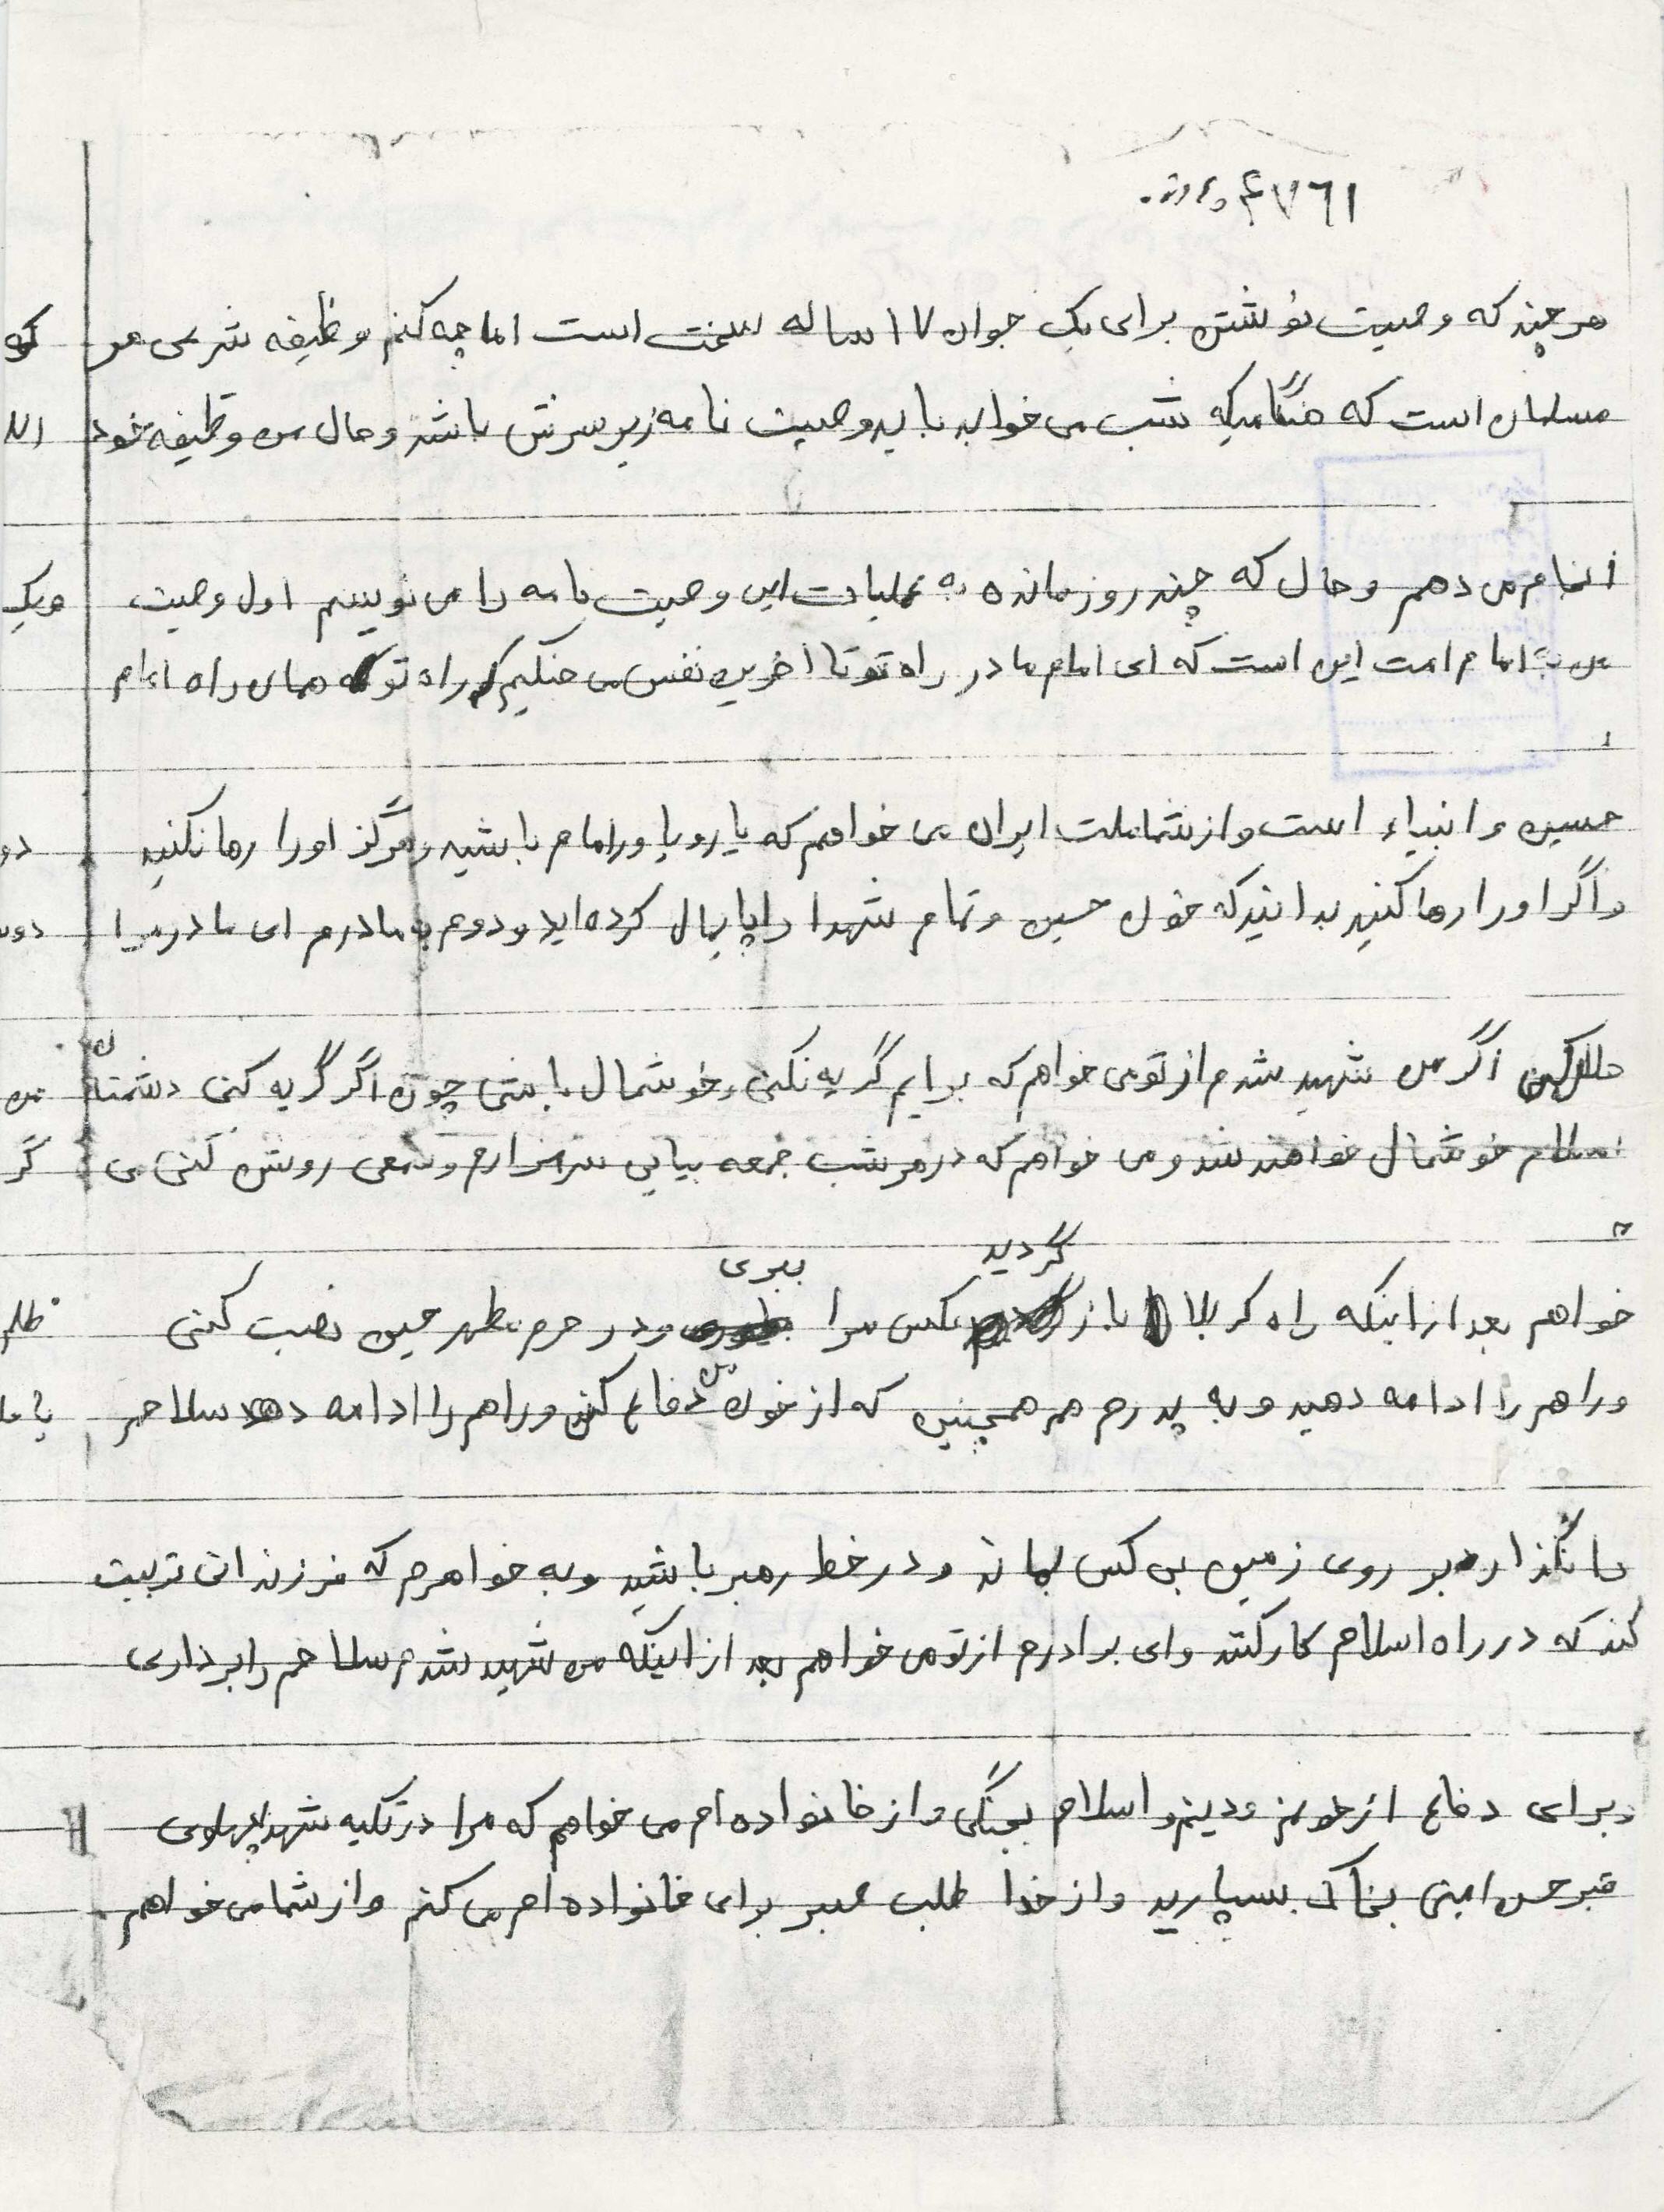 ۴۷۶۱ پرونده
هر چند که وصیت نوشتن برای یک جوان ۱۷ ساله سخت است اما چه کنم وظیفه شرعی هر
مسلمان است که هنگامیکه شب می خوابد باید وصیت نامه زیر سرش باشد و حال من وظیفه خود
انجام می دهم و حال که چند روز مانده به عملیات این وصیت نامه را می نویسم اول وصیت
من به امام امت این است که ای امام ما در راه تو تا اخرین نفس می جنگیم راه تو که همان راه امام
حسین و انبیاء است و از شما ملت ایران می خواهم که یار و یاور امام باشید و هرگز او را رها نکنید
و اگر او را رها کنید بدانید که خون حسین و تمام شهدا را پایمال کرده اید و دوم به مادرم ای مادر مرا
حلال کن اگر من شهید شدم از تو می خواهم که برایم گریه نکنی و خوشحال باشی چون اگر گریه کنی دشمنان
اسلام خوشحال خواهند شد و می خواهم که در هر شب جمعه بیایی سر مزارم و شمعی روشن کنی می
خواهم بعد از اینکه راه کربلا باز گردید عکس مرا ببری و در حرم مطهر حسین نصب کنی
و راهم را ادامه دهید و به پدرم هم همچنین که از خون من دفاع کن و راهم را ادامه دهد سلاحم
را نگذارد بر روی زمین بی کس بماند و در خط رهبر باشید و به خواهرم که فرزندانی تربیت
کند که در راه اسلام کار کنند و ای برادرم از تو می خواهم بعد از اینکه من شهید شدم سلاحم را برداری
و برای دفاع از خونم و دینم و اسلام بجنگی و از خانواده ام می خواهم که مرا در تکیه شهدا پهلوی
قبر حسن امینی بخاک بسپارید و از خدا طلب صبر برای خانواده ام می کنم و از شما می خواهم